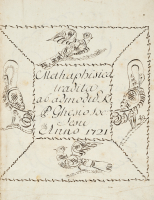 Metaphisica
tradita
ac admodum R.
P. Ghesio Soc
Jesu
Anno 1721